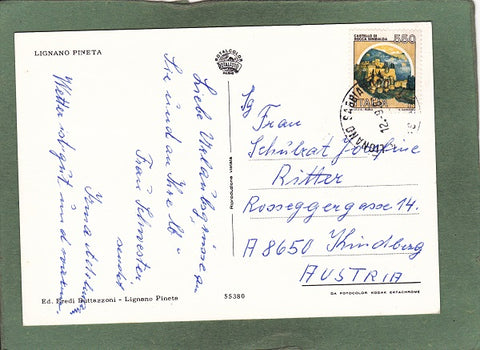 LIGNANO PINETA
ROTALCOLOR
CASTELLO DI
ROCCA SINIBALDA
550
ITALIA
LIGNANO SABBIA
12.
Liebe Urlaubsgrüsse an
Sie und an Ihre lb
Frau Schwester
sendet
Irma
Wetter ist gut und warm
Frau
Schulrat Josefine
Ritter
Roseggergasse 14.
A 8650 Kindberg
AUSTRIA
Riproduzione vietata
Ed. Eredi Buttazzoni - Lignano Pineta
55380
DA FOTOCOLOR KODAK EKTACHROME